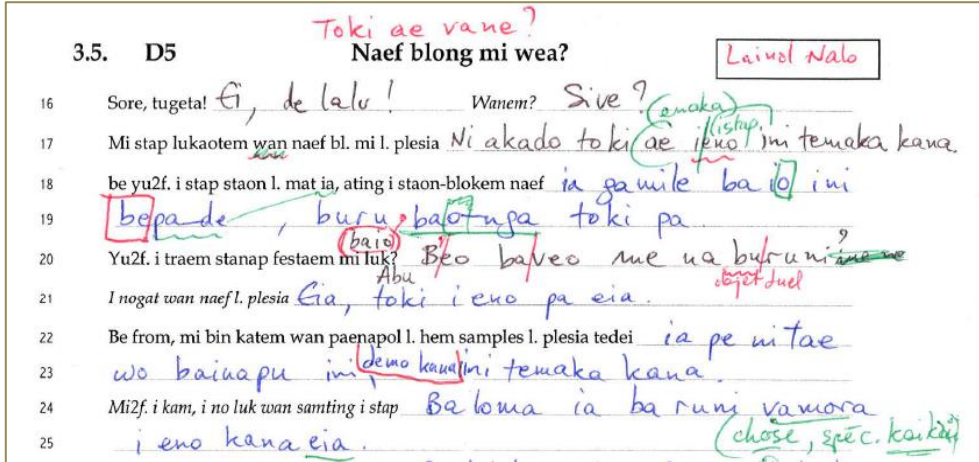 Toki ae vane?
3.5. D5 Naef blong mi wea? Lainol Nalo
16 Sore, tugeta! Ei, de lalu! Wanem? Sive?
(enaka)
(istap)
17 Mi stap lukaotem wan naef bl. mi l. plesia Ni akado toki ae ieno ini temaka kana.
18 be yu2f. i stap staon l. mat ia, ating i staon-blokem naef ia gamile ba io ini
19 bepa de, buru baionga toki pa
(baio)
20 Yu2f. i traem stanap festaem mi luk? Beo baveo me na buruni?
Abu objet duel
21 I nogat wan naef l. plesia Eia, toki i eno pa eia.
22 Be from, mi bin katem wan paenapol l. hem samples l. plesia tedei ia pe ni tae
23 wo bainapu ini, demo kana ini temaka kana.
24 Mi2f. i kam, i no luk wan samting i stap Ba loma ia ba runi vamora
25 i eno kana eia. (chose, spéc. kaikai)